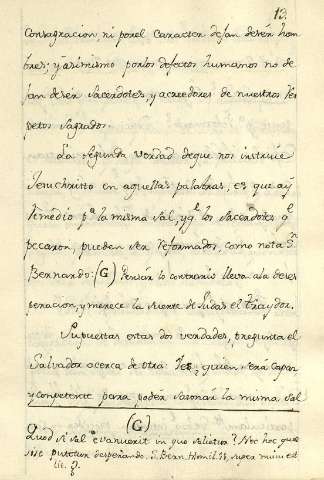 13.
Consagracion, ni por el Caracter dejan de sér hom
bres; y asimismo por los defectos humanos no de
jan de sér sacerdotes, y acreedores de nuestros res
petos sagrados.
La segunda verdad de que nos instruie
Jesuchristo en aquellas palabras, es que ay
remedio pa. la misma sal, y qe. los sacerdotes qe.
pecaron, pueden ser reformados, como nota Sn.
Bernardo: (G) Pensár lo contrario lleva a la deses
peracion, y merece la suerte de Judas el traydor.
Supuestas estas dos verdades, pregunta el
Salvador acerca de otra: quien será capaz
y competente para podér sasonár la misma sal
(G)
Quod si sal evanuerit in quo salietur? Nec hoc, quasi
putetur S. Bern. Homil. super